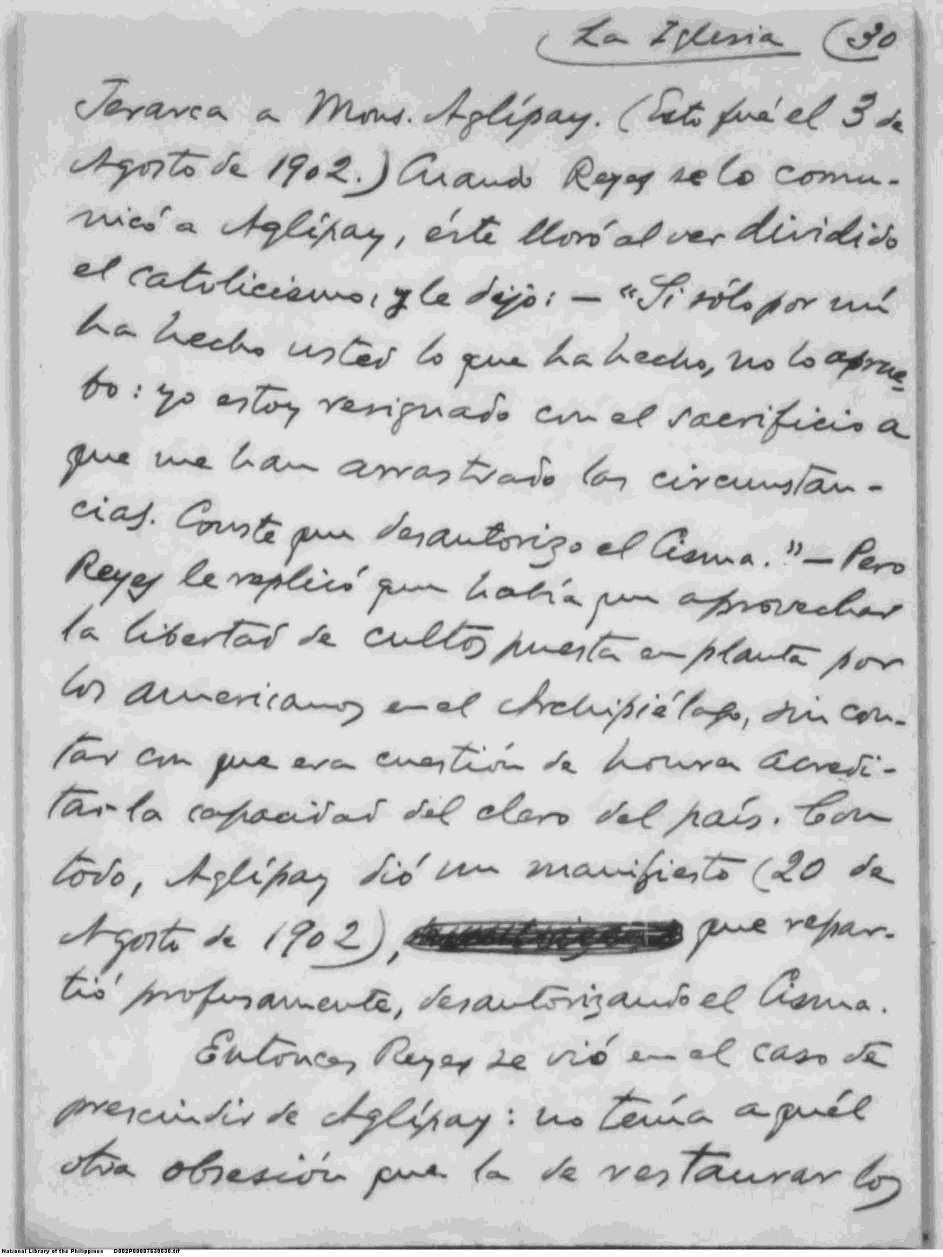 La Iglesia (30
Jerarca a Mons. Aglípay. (Esto fué el 3 de
Agosto de 1902.) Cuando Reyes se lo comu-
nicó a Aglípay, éste lloró al ver dividido
el catolicismo, y le dijo: — "Si sólo por mí
ha hecho usted lo que ha hecho, no lo aprue-
bo: yo estoy resignado con el sacrificio a
que me han arrastrado las circunstan-
cias. Conste que desautorizo el Cisma." — Pero
Reyes le replicó que había que aprovechar
la libertad de cultos puesta en planta por
los americanos en el Archipiélago, sin con-
tar con que era cuestión de honra acredi-
tar la capacidad del clero del país. Con
todo, Aglípay dió un manifiesto (20 de
Agosto de 1902), que repar-
tió profusamente, desautorizando el Cisma.
Entonces Reyes se vió en el caso de
prescindir de Aglípay: no tenía aquél
otra obsesión que la de restaurar los
National Library of the Philippines D002P00007630030.tif